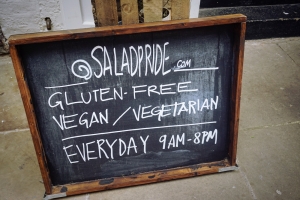 @SALADPRIDE.COM
GLUTEN-FREE
VEGAN / VEGETARIAN
EVERYDAY 9AM-8PM